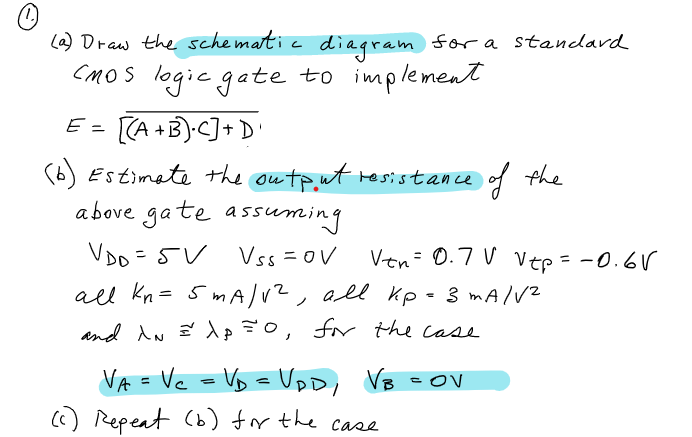 1.
(a) Draw the schematic diagram for a standard
CMOS logic gate to implement
E = \overline{[(A+B)·C]+D}
(b) Estimate the output resistance of the
above gate assuming
V_DD = 5V V_SS = 0V V_tn = 0.7 V V_tp = -0.6V
all K_n = 5 mA/V², all K_p = 3 mA/V²
and λ_N ≅ λ_P ≅ 0, for the case
V_A = V_C = V_D = V_DD, V_B = 0V
(c) Repeat (b) for the case